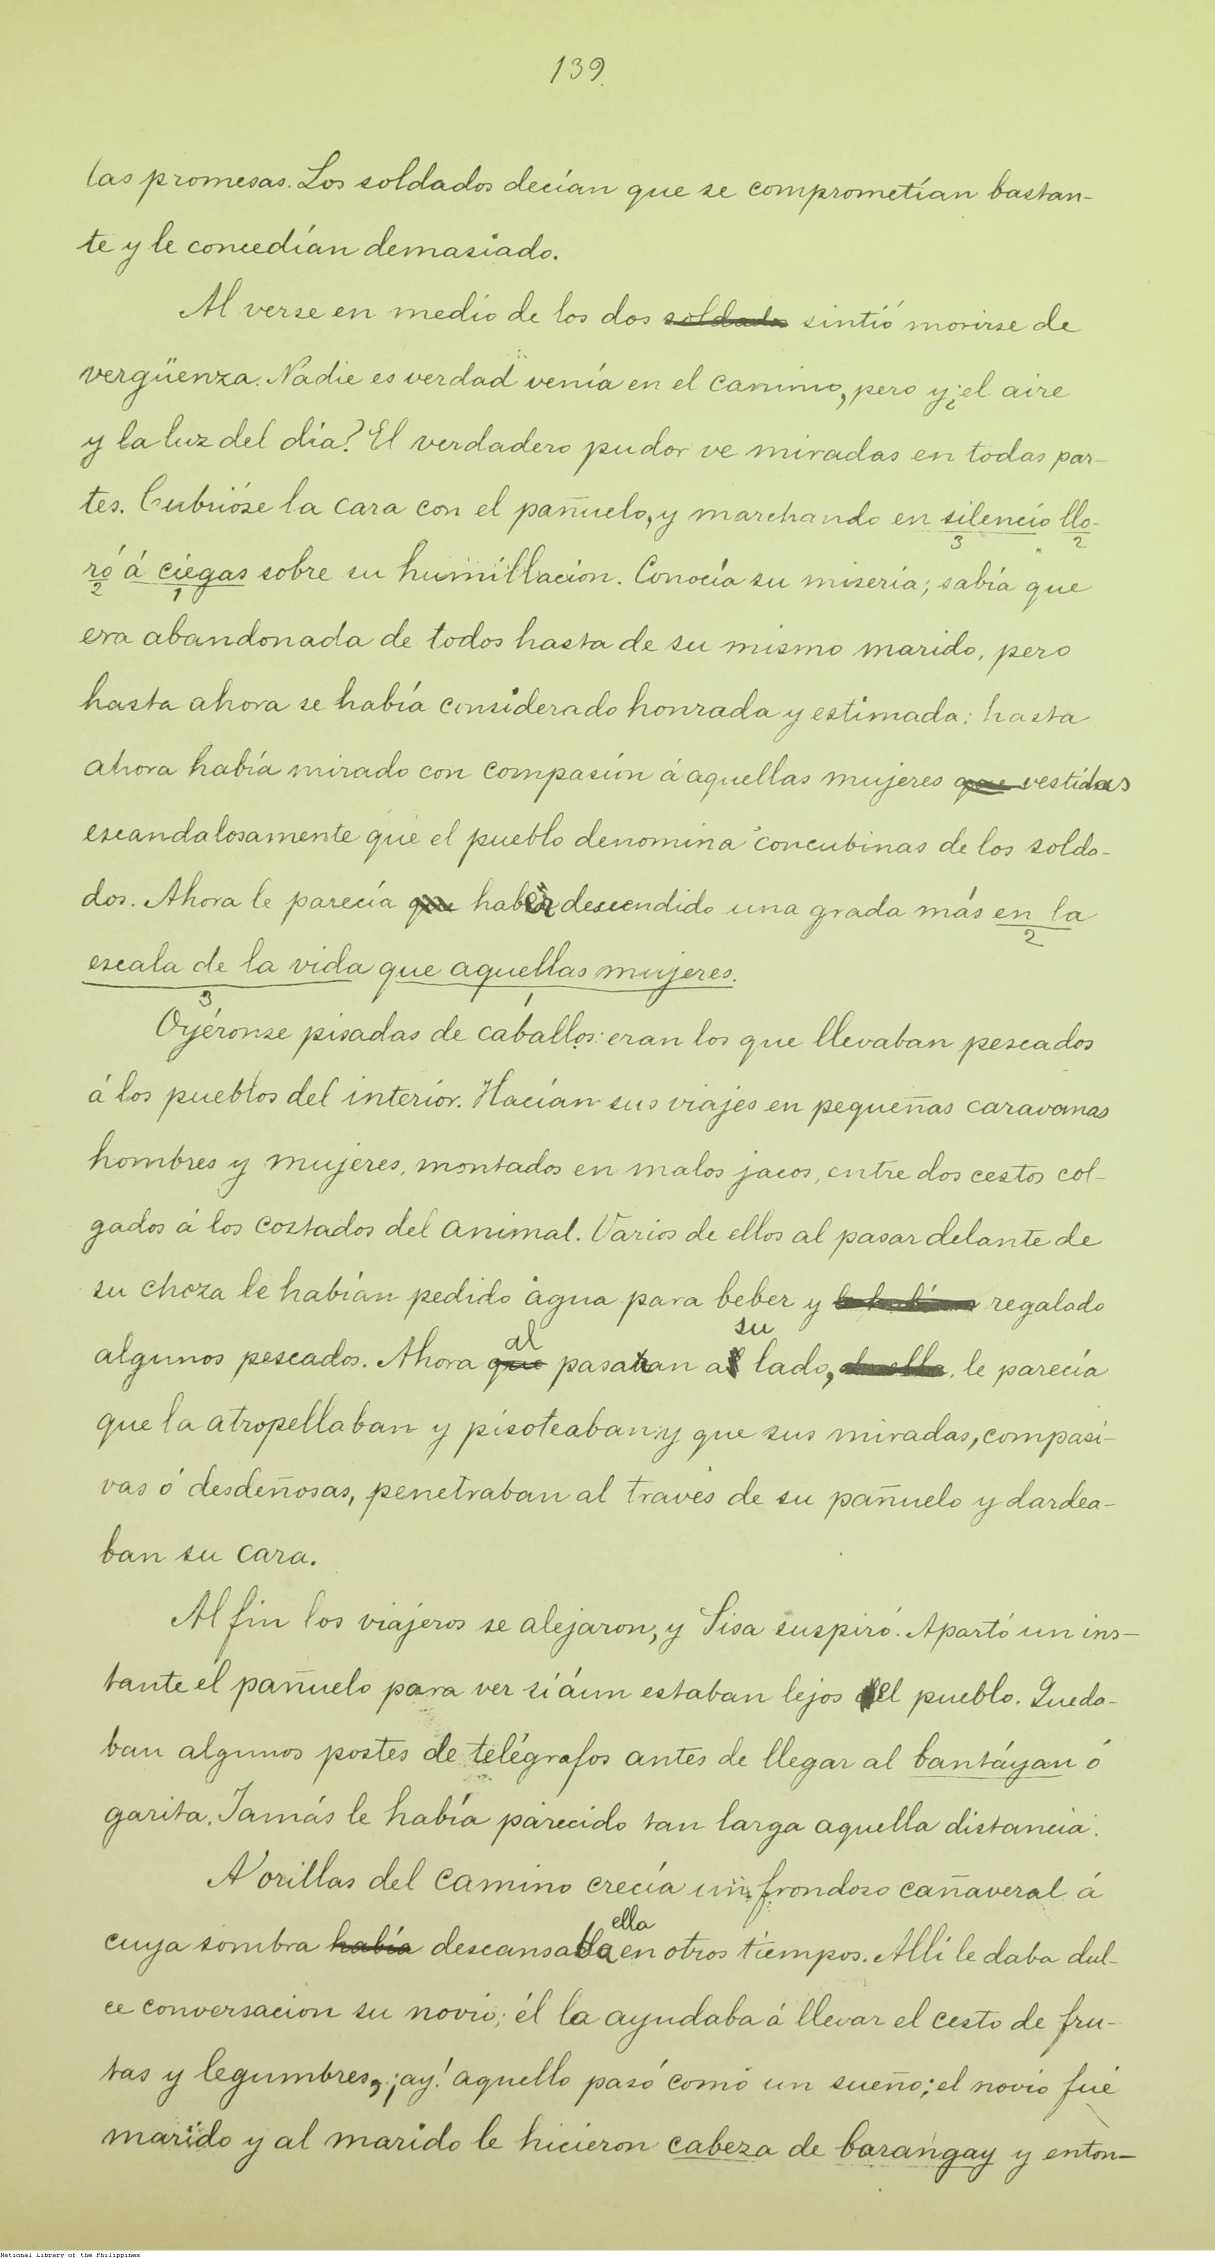 139.
las promesas. Los soldados decían que se comprometían bastan-
te y le concedían demasiado.
Al verse en medio de los dos soldados sintió morirse de
vergüenza. Nadie es verdad venía en el camino, pero y ¿el aire
y la luz del día? El verdadero pudor ve miradas en todas par-
tes. Cubrióse la cara con el pañuelo, y marchando en silencio llo-
3 2
ró á ciegas sobre su humillacion. Conocía su miseria; sabía que
2 1
era abandonada de todos hasta de su mismo marido, pero
hasta ahora se había considerado honrada y estimada: hasta
ahora había mirado con compasión á aquellas mujeres que vestidas
escandalosamente que el pueblo denomina concubinas de los solda-
dos. Ahora le parecía que haber descendido una grada más en la
2
escala de la vida que aquellas mujeres.
3 1
Oyéronse pisadas de caballos: eran los que llevaban pescados
á los pueblos del interior. Hacían sus viajes en pequeñas caravanas
hombres y mujeres, montados en malos jacos, entre dos cestos col-
gados á los costados del animal. Varios de ellos al pasar delante de
su choza le habían pedido agua para beber y le habían regalado
al su
algunos pescados. Ahora que pasaban a lado, de ella, le parecía
que la atropellaban y pisoteaban y que sus miradas, compasi-
vas ó desdeñosas, penetraban al través de su pañuelo y dardea-
ban su cara.
Al fin los viajeros se alejaron, y Sisa suspiró. Apartó un ins-
tante el pañuelo para ver si áun estaban lejos del pueblo. Queda-
ban algunos postes de telégrafos antes de llegar al bantáyan ó
garita. Jamás le había parecido tan larga aquella distancia.
A orillas del camino crecía un frondoso cañaveral á
ella
cuya sombra había descansaba en otros tiempos. Allí le daba dul-
ce conversacion su novio; él la ayudaba á llevar el cesto de fru-
tas y legumbres, ¡ay! aquello pasó como un sueño; el novio fué
marido y al marido le hicieron cabeza de barangay y enton-
National Library of the Philippines